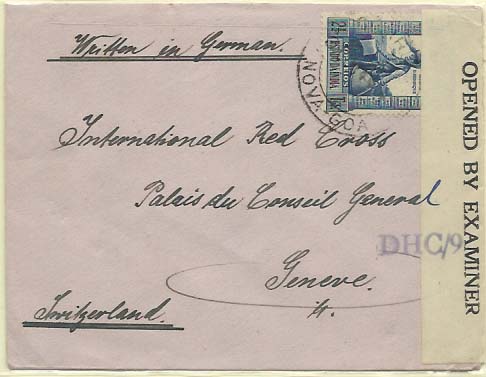 Written in German.
CORREIOS
NOVA-GOA
OPENED BY EXAMINER
International Red Cross
Palais du Conseil General
DHC/9
Geneve.
Switzerland.